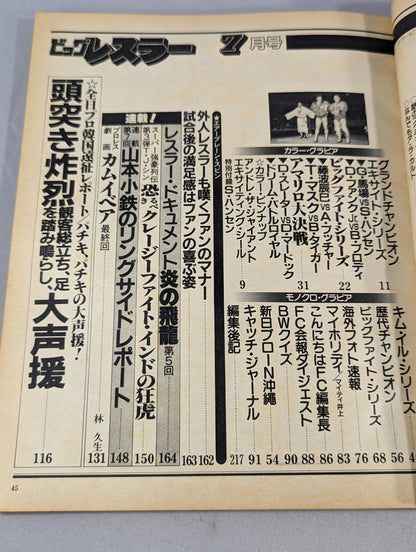 ビッグレスラー 7月号
カラー・グラビア
グランドチャンピオン
エキサイト・シリーズ
G・馬場VSS・ハンセン
D・ファンクJr.VSB・ブロディ 11
ビッグファイト・シリーズ
藤波辰巳VSA・ブッチャー
T・マスクVSB・タイガー 22
アマリロ大決戦
D・スレーターVSD・マードック
トリプル・バトルロイヤル 31
☆カラー・ピンナップ
アンドレ・ザ・ジャイアント
エキサイティング・シール
特別付録S・ハンセン 9
モノクロ・グラビア
キム・イル・シリーズ
歴代チャンピオン 56
ビッグファイト・シリーズ 68
海外フォト速報 76
マイホリデイ/マイティ井上 83
こんにちはFC編集長 86
FC会報ダイジェスト 88
BWクイズ 90
新日プロIN沖縄 54
キャッチ・ジャーナル 91
編集後記 217
★エアープレーン・スピン
外人レスラーも嘆くファンのマナー 162
試合後の満足感はファンの喜ぶ姿 163
連載!
レスラー・ドキュメント 炎の飛龍 第5回 164
スーパー強豪列伝
第3弾 T・J・シン 恐るべきクレージーファイト・インドの狂虎 150
連載
第7回 山本小鉄のリングサイドレポート 148
プロレス
劇画 カムイベア 最終回 林 久生 131
☆全日プロ韓国遠征レポート/パチキ、パチキの大声援!
頭突き炸烈 観客総立ち、足を踏み鳴らし、大声援 116
45